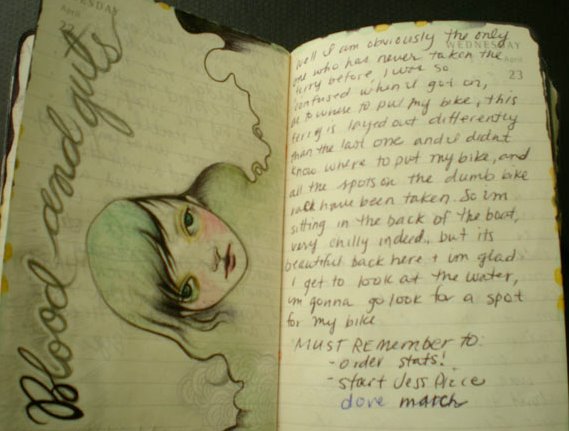 WEDNESDAY
April
22
Blood and guts
WEDNESDAY
April
23
Well I am obviously the only
one who has never taken the
ferry before, I was so
confused when I got on,
as to where to put my bike, this
ferry is layed out differently
than the last one and I didnt
know where to put my bike, and
all the spots on the dumb bike
rack have been taken. So im
sitting in the back of the boat,
very chilly indeed, but its
beautiful back here + im glad
I get to look at the water,
im gonna go look for a spot
for my bike
MUST REMember to:
- order stats!
- start Jess Piece
dove march